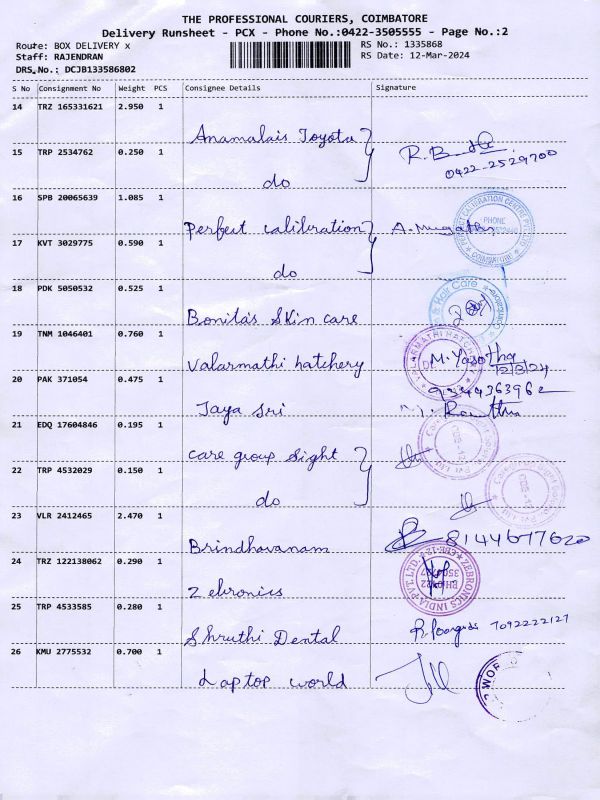 THE PROFESSIONAL COURIERS, COIMBATORE
Delivery Runsheet - PCX - Phone No.:0422-3505555 - Page No.:2
Route: BOX DELIVERY x
RS No.: 1335868
Staff: RAJENDRAN
RS Date: 12-Mar-2024
DRS.No.: DCJB133586802
S No Consignment No Weight PCS Consignee Details Signature
14 TRZ 165331621 2.950 1
Anamalais Toyota
15 TRP 2534762 0.250 1
do
0422-2529700
16 SPB 20065639 1.085 1
Perfect calibration
17 KVT 3029775 0.590 1
do
18 PDK 5050532 0.525 1
Bonitas Skin care
19 TNM 1046401 0.760 1
Valarmathi hatchery
M. Yasotha
12/3/24
20 PAK 371054 0.475 1
9244363962
Jaya Sri
21 EDQ 17604846 0.195 1
care group Sight
22 TRP 4532029 0.150 1
do
23 VLR 2412465 2.470 1
Brindhavanam
8144677620
24 TRZ 122138062 0.290 1
Zebronics
ZEBRONICS INDIA PVT. LTD.
25 TRP 4533585 0.280 1
Shruthi Dental
7092222127
26 KMU 2775532 0.700 1
Laptop world